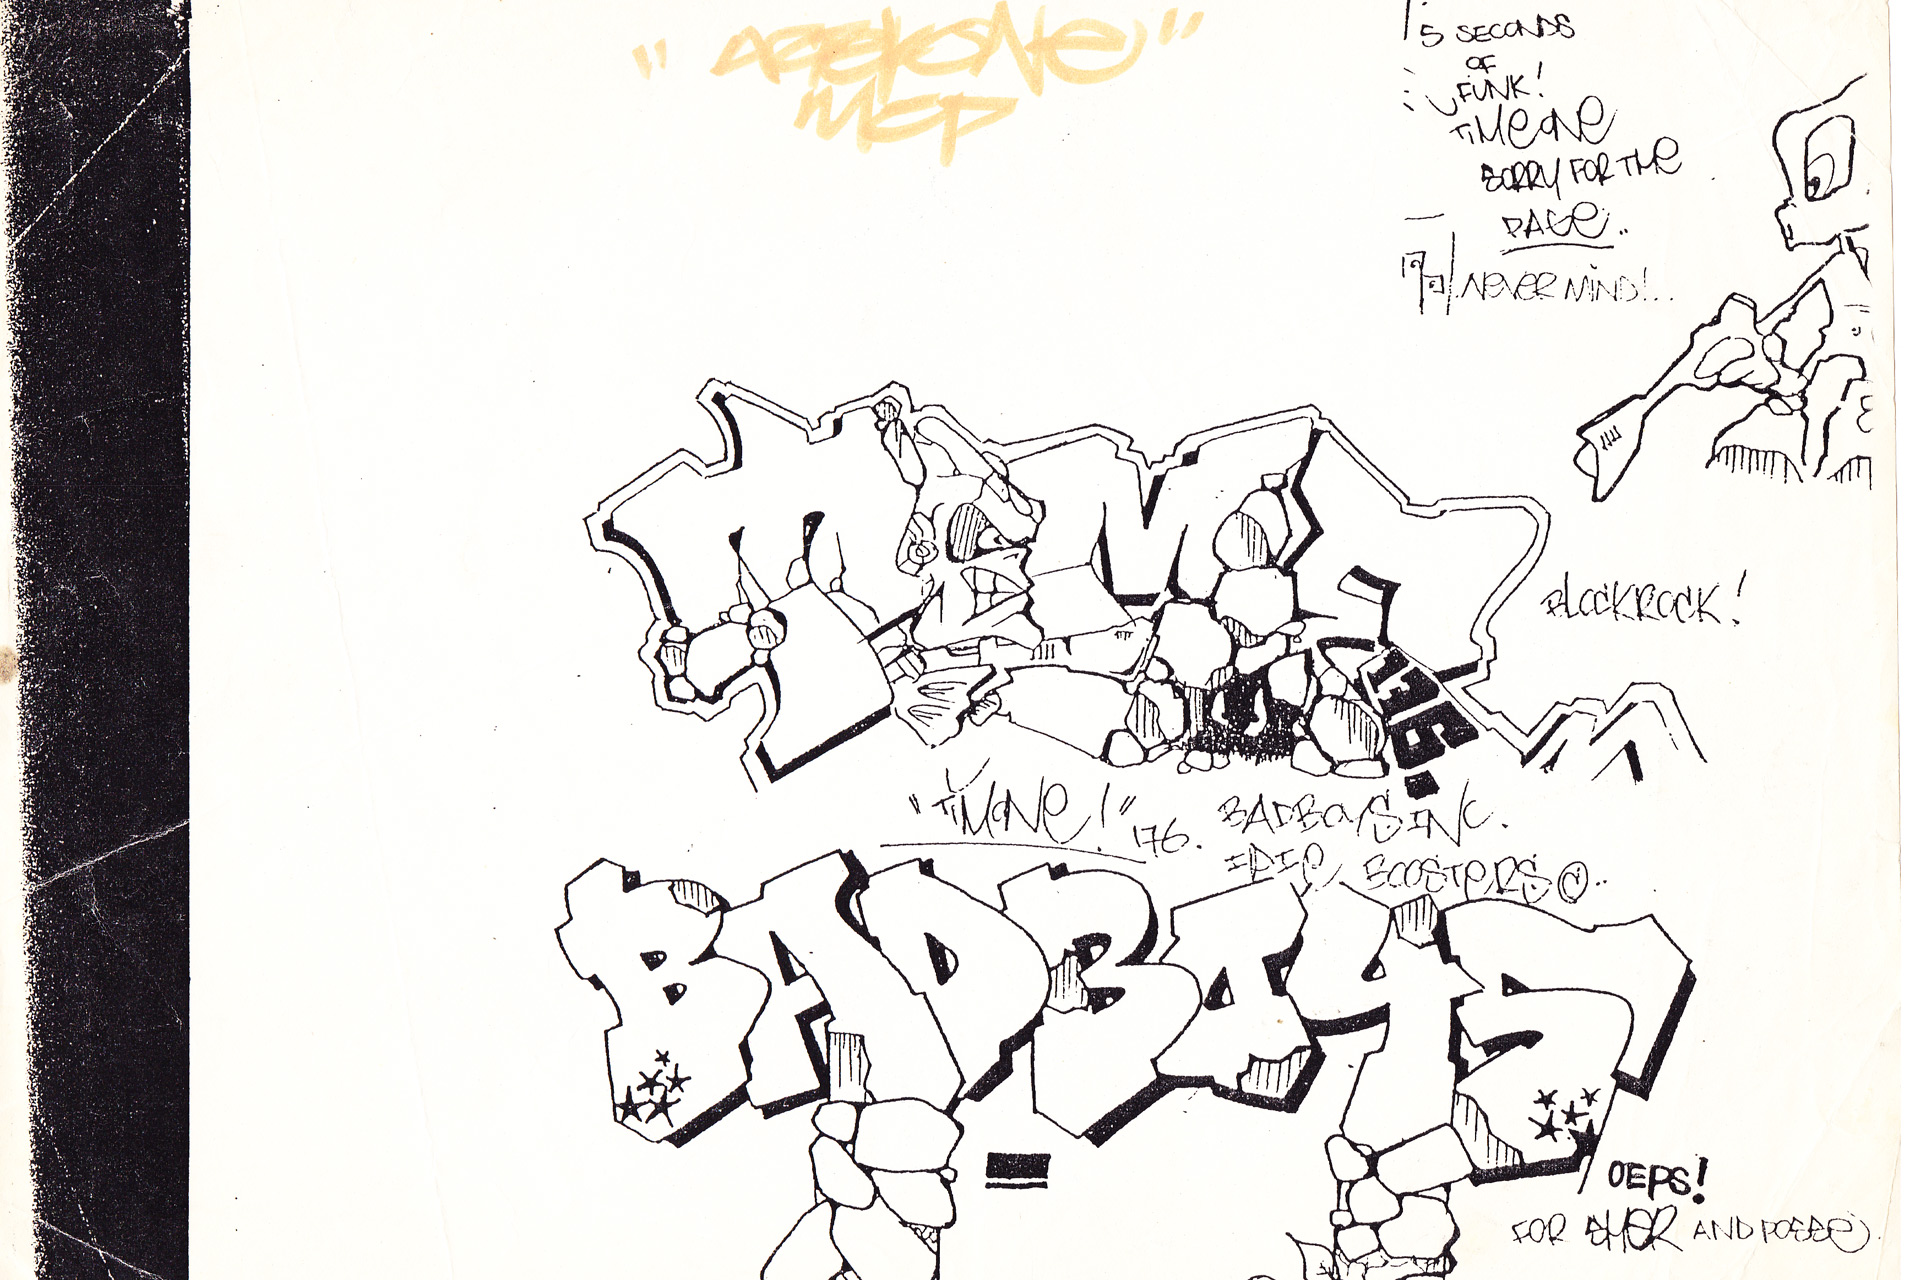 MCP
5 SECONDS
OF
FUNK!
TIMEONE
SORRY FOR THE
PAGE..
NEVERMIND!..
BLOCKROCK!
176.
"TIMONE!" 176. BADBOYS INC.
EPIC BOOSTERS ©..
BADBOYS
OEPS!
FOR SHER AND POSSE